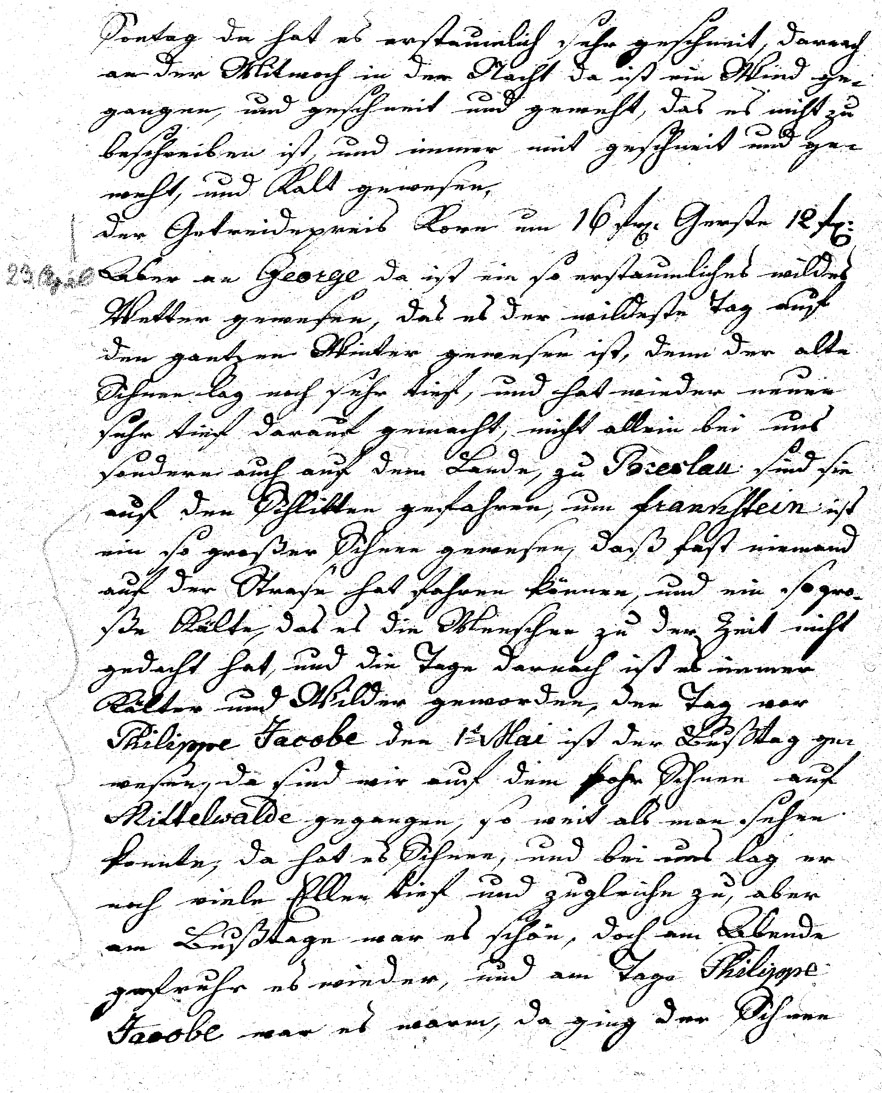 Sontag da hat es erstaunlich sehr geschneit, darnach
an der Mitwoch in der Nacht da ist ein Wind ge-
gangen, und geschneit und geweht, das es nicht zu
beschreiben ist, und immer mit geschneit und ge-
weht, und Kalt gewesen,
der Getreidepreis Korn um 16 fx: Gerste 12 fx:
23 April
Aber an George da ist ein so erstaunliches wildes
Wetter gewesen, das es der wildeste Tag auf
den gantzen Winter gewesen ist, denn der alte
Schnee lag noch sehr tief, und hat wieder neuen
sehr tief darauf gemacht, nicht allein bei uns
sondern auch auf dem Lande, zu Breslau sind sie
auf den Schlitten gefahren, um frankstein ist
ein so großer Schnee gewesen, daß fast niemand
auf der Straße hat fahren können, und ein so gro-
ße Kälte, das es die Menschen zu der Zeit nicht
gedacht hat, und die Tage darnach ist es immer
Kälter und Wilder geworden, den Tag vor
Philippe Jacobe den 1t Mai ist der Bußtag ge-
wesen, da sind wir auf dem Schnee auf
Mittelwalde gegangen, so weit als man sehen
konnte, da hat es Schnee, und bei uns lag er
noch viele Ellen tief und zugleiche zu, aber
am Bußtage war es schön, doch am Abende
gefruhr es wieder, und am Tage Philippe
Jacobe war es warm, da ging der Schnee